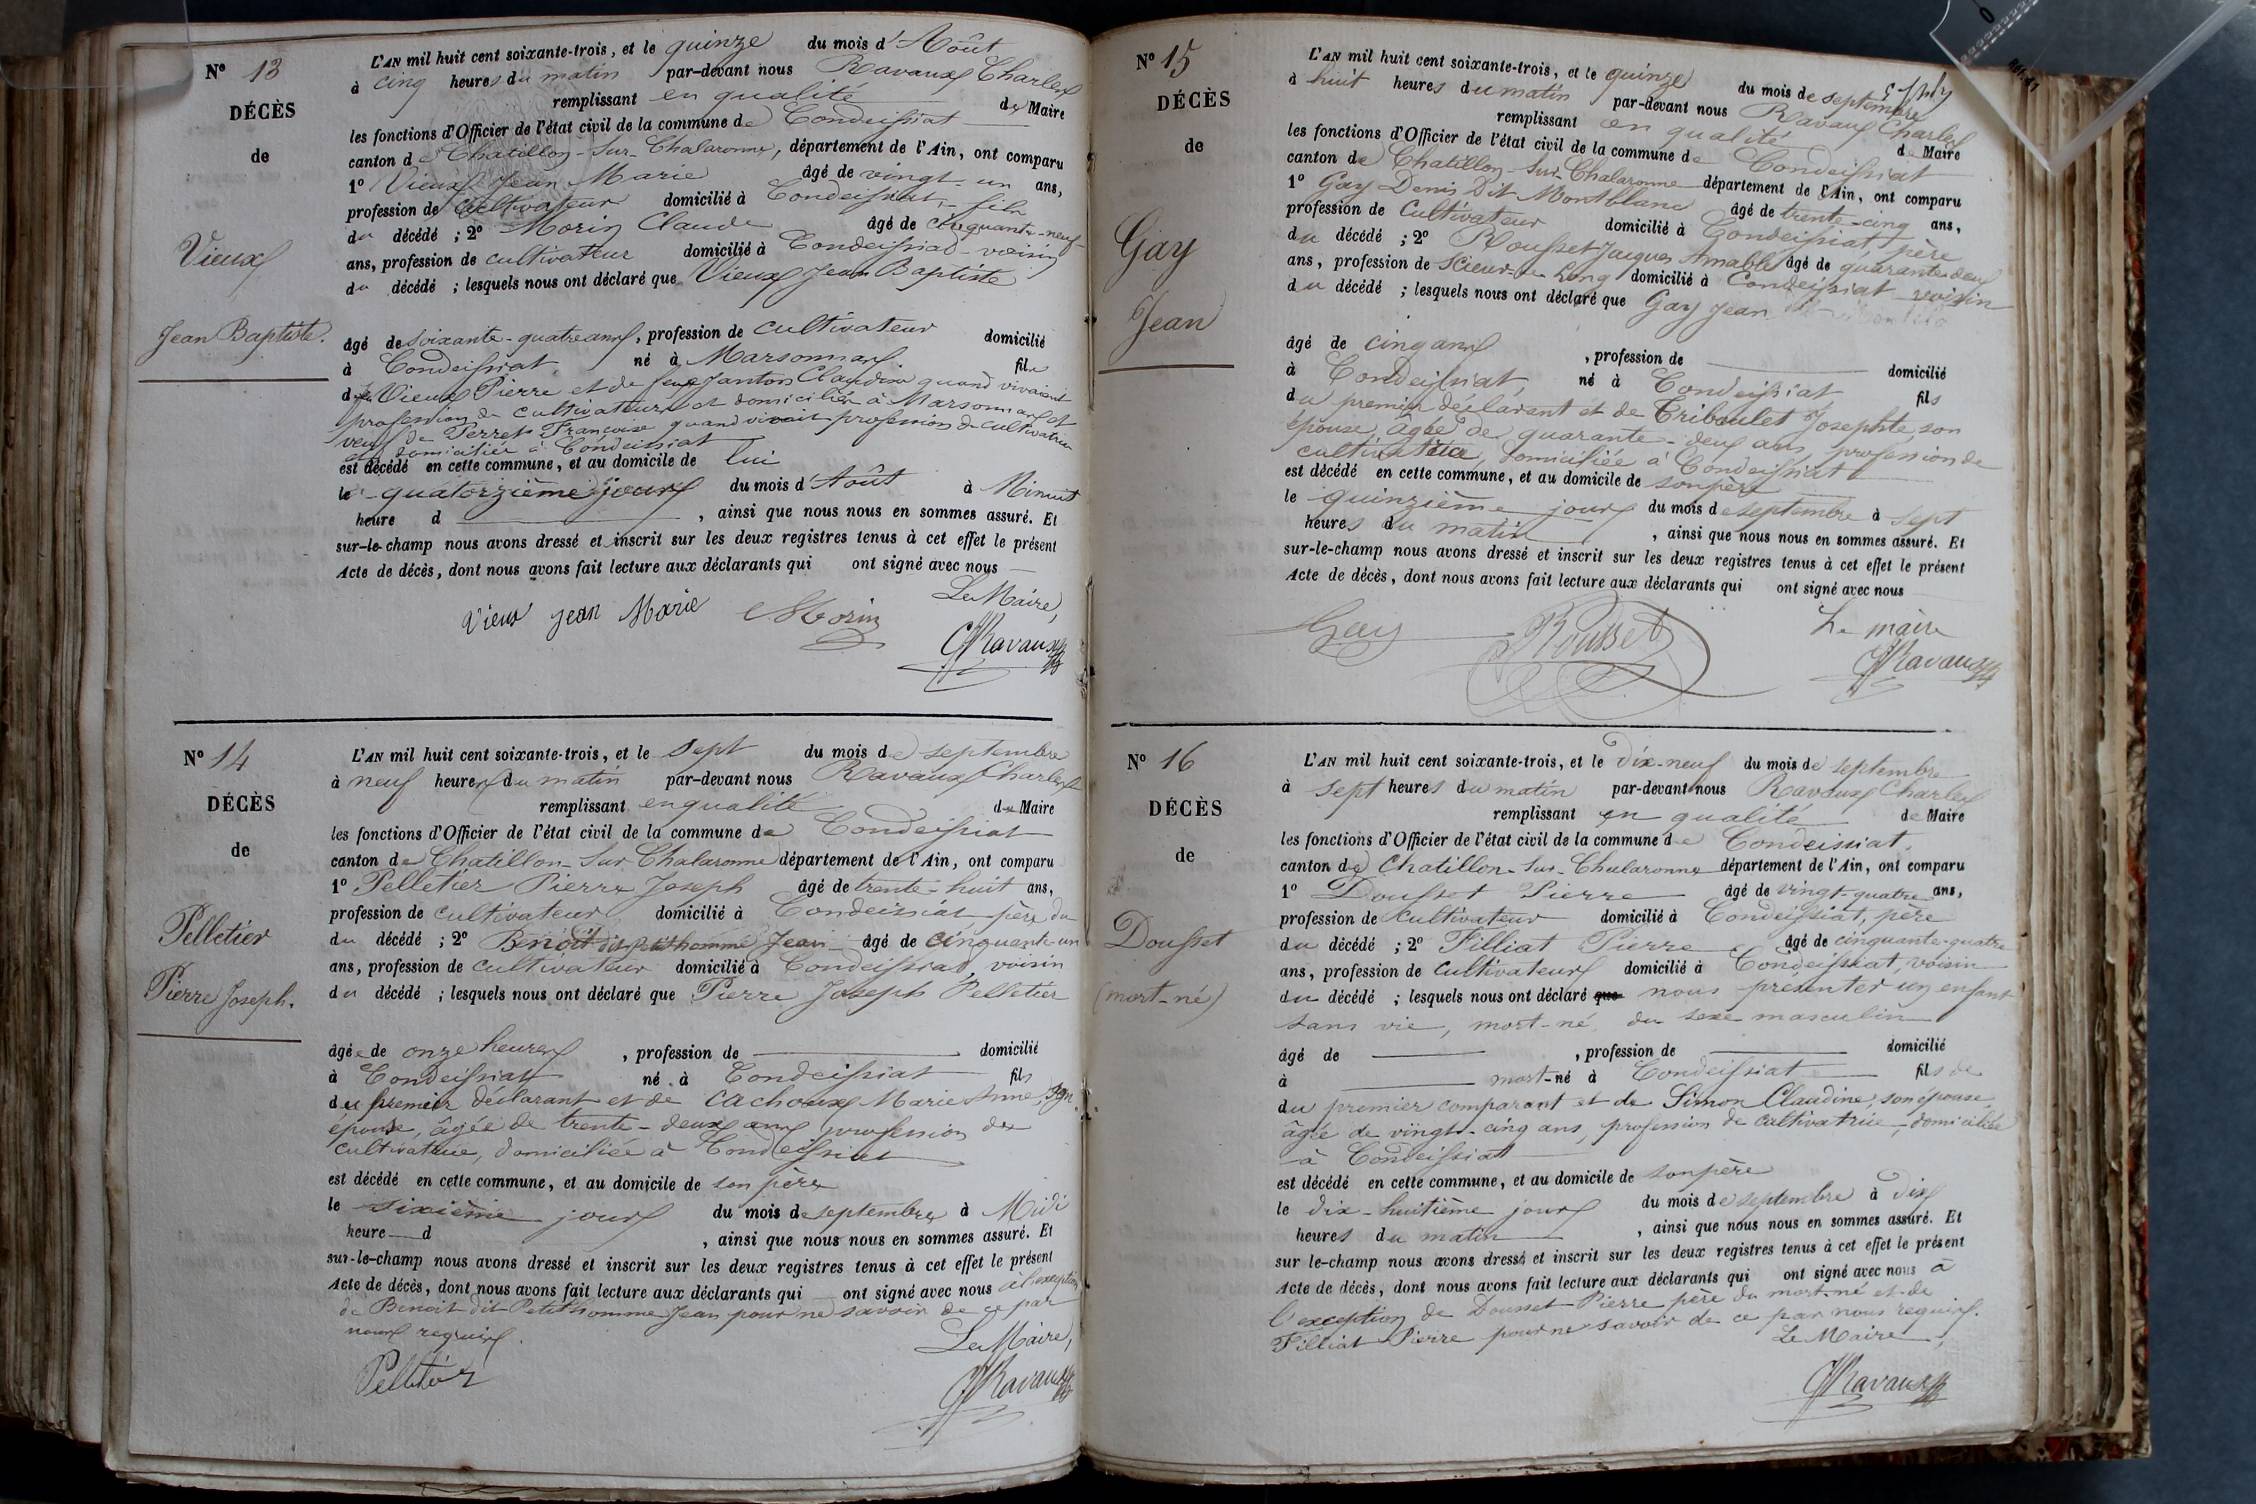 N° 13
DÉCÈS
de
Vieux
Jean Baptiste.
L'AN mil huit cent soixante-trois, et le quinze du mois d'Août
à cinq heures du matin par-devant nous Ravaux Charles
remplissant en qualité de Maire
les fonctions d'Officier de l'état civil de la commune de Condeissiat
canton de Chatillon-sur-Chalaronne, département de l'Ain, ont comparu
1° Vieux Jean Marie âgé de vingt-un ans,
profession de cultivateur domicilié à Condeissiat, fils
du décédé ; 2° Morin Claude âgé de cinquante-neuf
ans, profession de cultivateur domicilié à Condeissiat voisin
du décédé ; lesquels nous ont déclaré que Vieux Jean Baptiste
âgé de soixante-quatre ans, profession de cultivateur domicilié
à Condeissiat né à Marsonnas fils
de Vieux Pierre et de Janton Claudine quand vivaient
profession de cultivateurs et domiciliés à Marsonnas et
veuf de Perret Françoise quand vivait profession de cultivatrice
et domiciliée à Condeissiat
est décédé en cette commune, et au domicile de lui
le quatorzième jour du mois d'Août à Minuit
heure d , ainsi que nous nous en sommes assuré. Et
sur-le-champ nous avons dressé et inscrit sur les deux registres tenus à cet effet le présent
Acte de décès, dont nous avons fait lecture aux déclarants qui ont signé avec nous
Le Maire,
Vieux Jean Marie Morin
Ravaux
N° 14
DÉCÈS
de
Pelletier
Pierre Joseph.
L'AN mil huit cent soixante-trois, et le sept du mois de septembre
à neuf heures du matin par-devant nous Ravaux Charles
remplissant en qualité de Maire
les fonctions d'Officier de l'état civil de la commune de Condeissiat
canton de Chatillon-sur-Chalaronne département de l'Ain, ont comparu
1° Pelletier Pierre Joseph âgé de trente-huit ans,
profession de cultivateur domicilié à Condeissiat père du
du décédé ; 2° Benoit dit Petithomme Jean âgé de cinquante-un
ans, profession de cultivateur domicilié à Condeissiat, voisin
du décédé ; lesquels nous ont déclaré que Pierre Joseph Pelletier
âgé de onze heures , profession de domicilié
à Condeissiat né à Condeissiat fils
du premier déclarant et de Cachoux Marie Anne, son
épouse, âgée de trente-deux ans profession de
cultivatrice, domiciliée à Condeissiat
est décédé en cette commune, et au domicile de son père
le sixième jour du mois de septembre à Midi
heure d , ainsi que nous nous en sommes assuré. Et
sur-le-champ nous avons dressé et inscrit sur les deux registres tenus à cet effet le présent
Acte de décès, dont nous avons fait lecture aux déclarants qui ont signé avec nous à l'exception
de Benoit dit Petithomme Jean pour ne savoir de ce par
nous requis.
Le Maire,
Pelletier
Ravaux
N° 15
DÉCÈS
de
Gay
Jean
L'AN mil huit cent soixante-trois, et le quinze du mois de septembre
à huit heures du matin par-devant nous Ravaux Charles
remplissant en qualité de Maire
les fonctions d'Officier de l'état civil de la commune de Condeissiat
canton de Chatillon-sur-Chalaronne département de l'Ain, ont comparu
1° Gay Denis dit Montblanc âgé de trente-cinq ans,
profession de Cultivateur domicilié à Condeissiat, père
du décédé ; 2° Rousset Jacques Amable âgé de quarante-deux
ans, profession de Scieur de Long domicilié à Condeissiat voisin
du décédé ; lesquels nous ont déclaré que Gay Jean
âgé de cinq ans , profession de domicilié
à Condeissiat né à Condeissiat fils
du premier déclarant et de Triboulet Josephte, son
épouse, âgée de quarante-deux ans, profession de
cultivatrice, domiciliée à Condeissiat
est décédé en cette commune, et au domicile de son père
le quinzième jour du mois de septembre à sept
heures du matin , ainsi que nous nous en sommes assuré. Et
sur-le-champ nous avons dressé et inscrit sur les deux registres tenus à cet effet le présent
Acte de décès, dont nous avons fait lecture aux déclarants qui ont signé avec nous
Gay Rousset Le maire
Ravaux
N° 16
DÉCÈS
de
Dousset
(mort-né)
L'AN mil huit cent soixante-trois, et le dix-neuf du mois de septembre
à sept heures du matin par-devant nous Ravaux Charles
remplissant en qualité de Maire
les fonctions d'Officier de l'état civil de la commune de Condeissiat
canton de Chatillon-sur-Chalaronne département de l'Ain, ont comparu
1° Dousset Pierre âgé de vingt-quatre ans,
profession de cultivateur domicilié à Condeissiat, père
du décédé ; 2° Filliat Pierre âgé de cinquante-quatre
ans, profession de cultivateur domicilié à Condeissiat, voisin
du décédé ; lesquels nous ont déclaré que nous présenter un enfant
sans vie, mort-né, du sexe masculin
âgé de , profession de domicilié
à mort-né à Condeissiat fils de
du premier comparant et de Simon Claudine, son épouse,
âgée de vingt-cinq ans, profession de cultivatrice, domiciliée
à Condeissiat
est décédé en cette commune, et au domicile de son père
le dix-huitième jour du mois de septembre à dix
heures du matin , ainsi que nous nous en sommes assuré. Et
sur le-champ nous avons dressé et inscrit sur les deux registres tenus à cet effet le présent
Acte de décès, dont nous avons fait lecture aux déclarants qui ont signé avec nous à
l'exception de Dousset Pierre père du mort-né et de
Filliat Pierre pour ne savoir de ce par nous requis.
Le Maire,
Ravaux